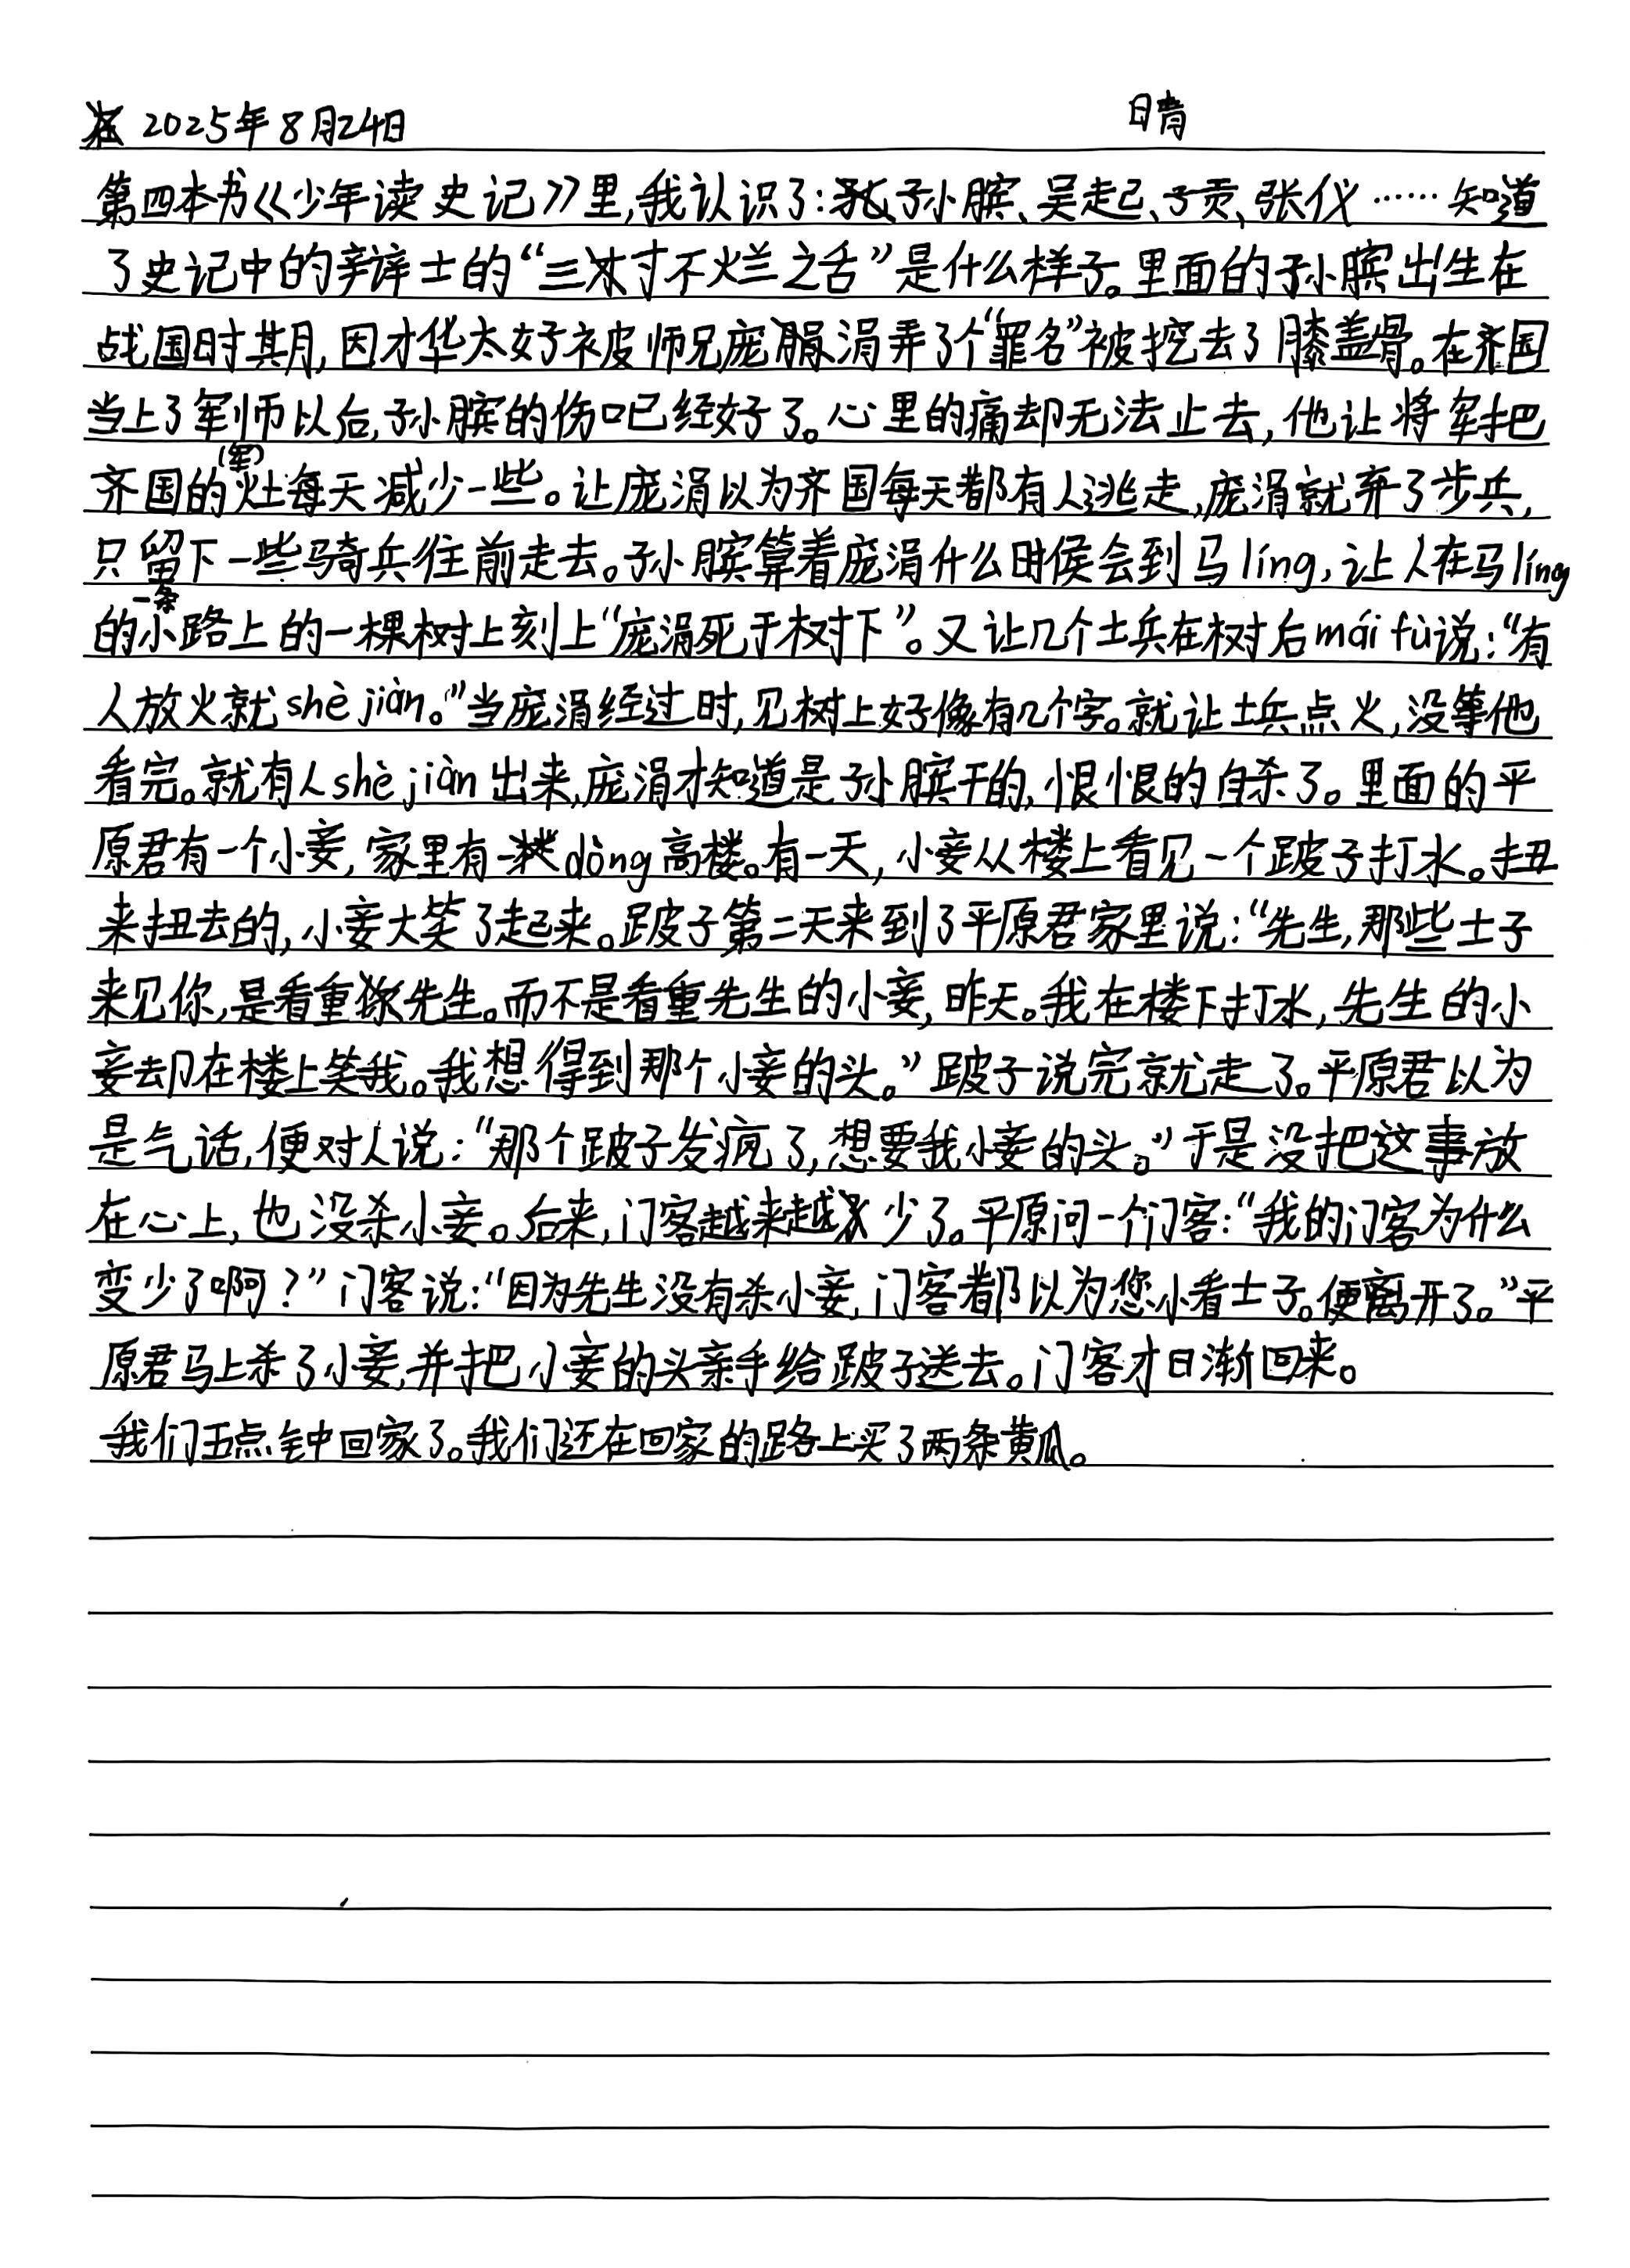 2025年8月24日 晴
第四本书《少年读史记》里,我认识了:孙膑、吴起、子贡、张仪……知道
了史记中的辩士的“三寸不烂之舌”是什么样子。里面的孙膑出生在
战国时期,因才华太好被师兄庞涓弄了个“罪名”被挖去了膝盖骨。在齐国
当上了军师以后,孙膑的伤口已经好了。心里的痛却无法止去,他让将军把
齐国的(军)灶每天减少一些。让庞涓以为齐国每天都有人逃走,庞涓就弃了步兵,
只留下一些骑兵往前走去。孙膑算着庞涓什么时侯会到马líng,让人在马líng
的一条小路上的一棵树上刻上“庞涓死于树下”。又让几个士兵在树后mái fù说:“有
人放火就shè jiàn。”当庞涓经过时,见树上好像有几个字。就让士兵点火,没等他
看完。就有人shè jiàn出来,庞涓才知道是孙膑干的,恨恨的自杀了。里面的平
原君有一个小妾,家里有一dòng高楼。有一天,小妾从楼上看见一个跛子打水。扭
来扭去的,小妾大笑了起来。跛子第二天来到了平原君家里说:“先生,那些士子
来见你,是看重先生。而不是看重先生的小妾,昨天。我在楼下打水,先生的小
妾却在楼上笑我。我想得到那个小妾的头。”跛子说完就走了。平原君以为
是气话,便对人说:“那个跛子发疯了,想要我小妾的头。”于是没把这事放
在心上,也没杀小妾。后来,门客越来越少了。平原问一个门客:“我的门客为什么
变少了啊?”门客说:“因为先生没有杀小妾,门客都以为您小看士子。便离开了。”平
原君马上杀了小妾,并把小妾的头亲手给跛子送去。门客才日渐回来。
我们五点钟回家了。我们还在回家的路上买了两条黄瓜。